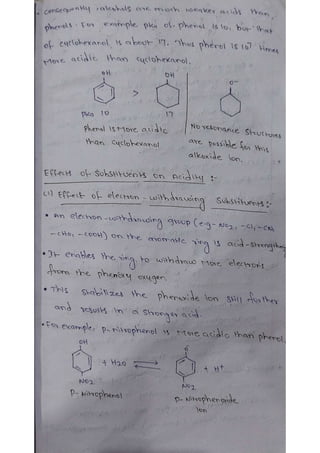 • consequently, alcohols are much weaker acids than
phenols. For example pka of phenol is 10, but that
of cyclohexanol is about 17. Thus phenol is 10⁷ times
more acidic than cyclohexanol.
OH
OH
O⁻
>
pka 10
17
Phenol is more acidic
than cyclohexanol
No resonance structures
are possible for this
alkoxide ion.
Effects of Substituents on Acidity :-
(i) Effect of electron-withdrawing substituents:-
• An electron-withdrawing group (e.g -NO2, -Cl, -CN
-CHO, -COOH) on the aromatic ring is acid-strengthening
• It enables the ring to withdraw more electrons
from the phenoxy oxygen.
• This stabilizes the phenoxide ion still further
and results in a stronger acid.
• For example, p-nitrophenol is more acidic than phenol.
OH
O⁻
+ H2O ⇌ + H⁺
NO2
NO2
p-Nitrophenol
p-Nitrophenoxide
ion